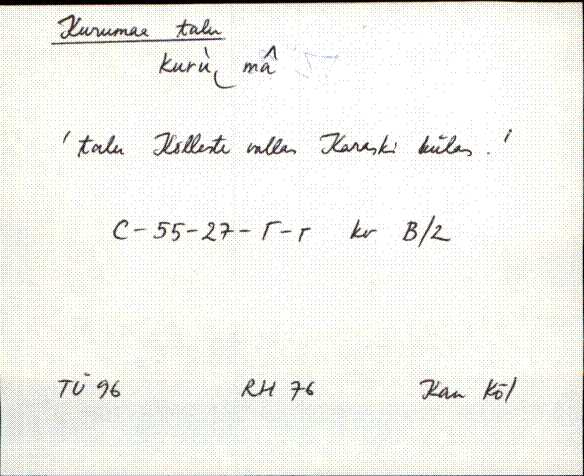 Kurumaa talu
kurù mâ
' talu Kõlleste vallas Karaski külas. '
C-55-27-Г-г kv B/2
TÜ 96 RH 76 Kan Kõl